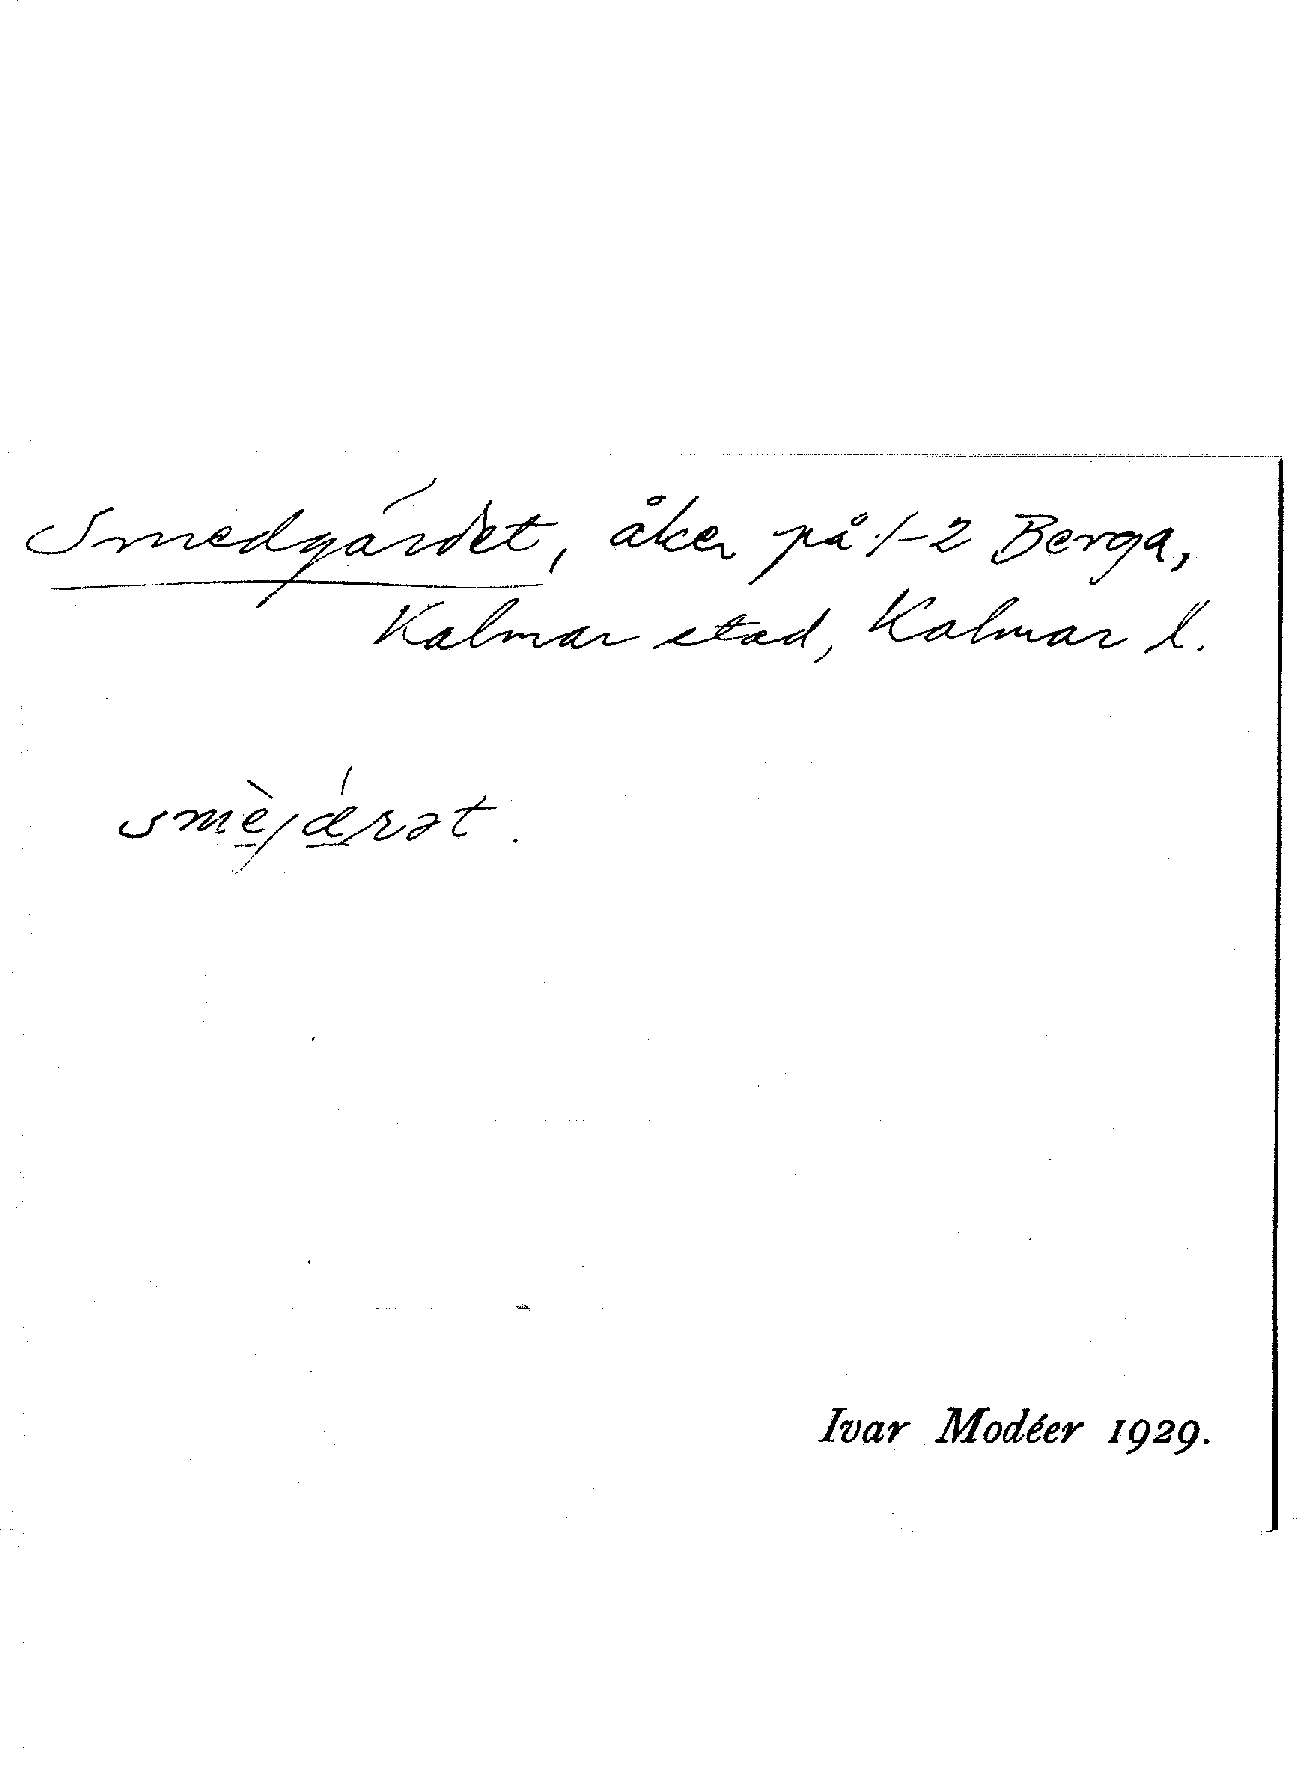 Smedgárdet, åker på 1-2 Berga,
Kalmar stad, Kalmar l.
smèjǽrət.
Ivar Modéer 1929.